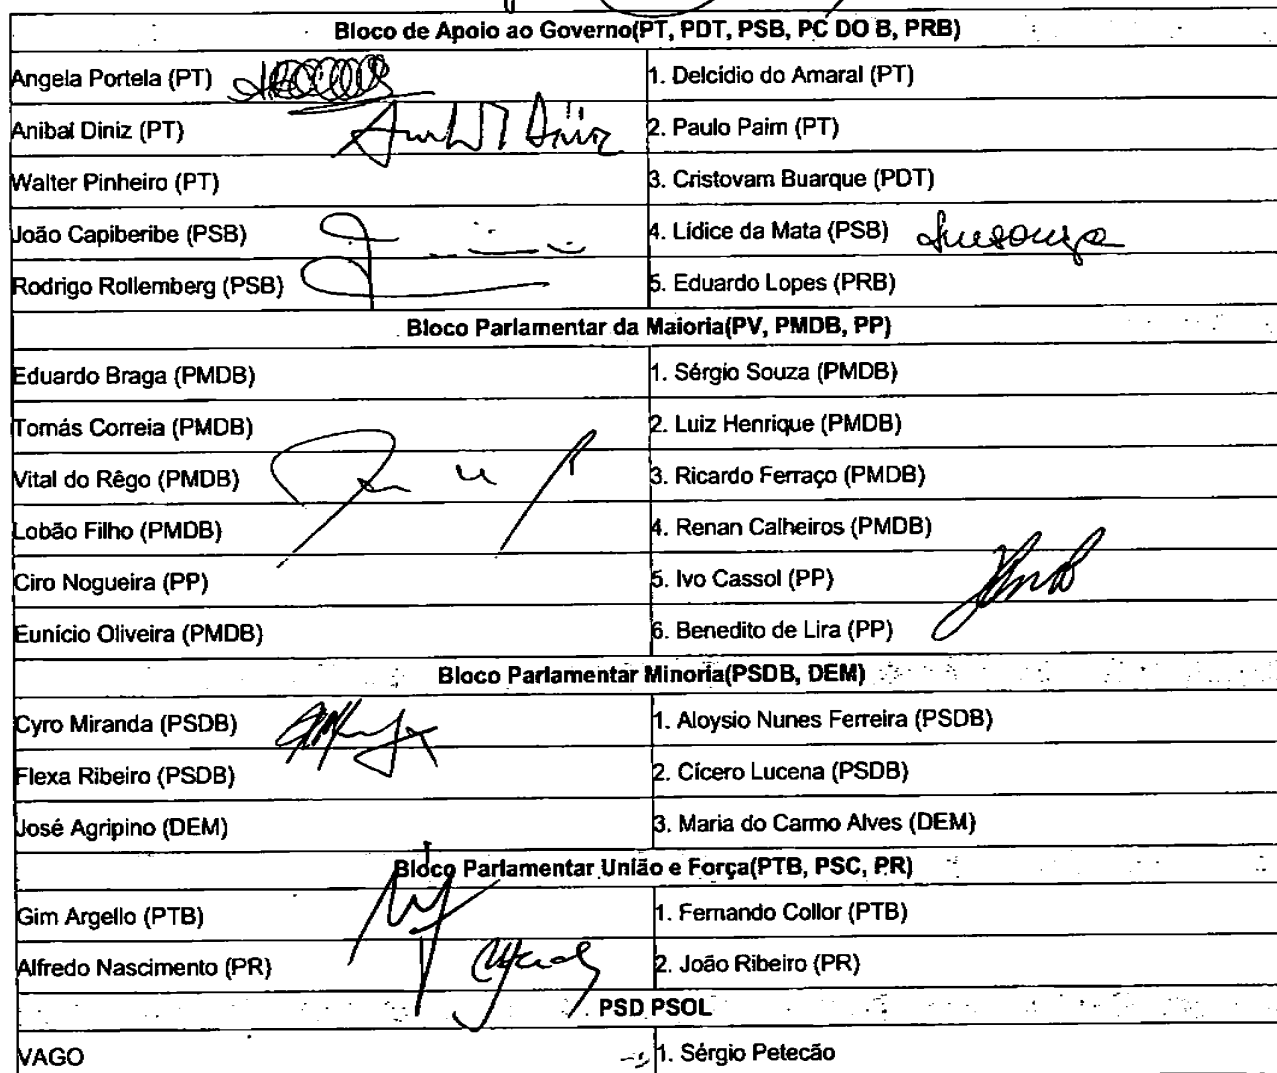 Bloco de Apoio ao Governo(PT, PDT, PSB, PC DO B, PRB)
Angela Portela (PT) 1. Delcídio do Amaral (PT)
Anibal Diniz (PT) Anibal Diniz 2. Paulo Paim (PT)
Walter Pinheiro (PT) 3. Cristovam Buarque (PDT)
João Capiberibe (PSB) 4. Lídice da Mata (PSB)
Rodrigo Rollemberg (PSB) 5. Eduardo Lopes (PRB)
Bloco Parlamentar da Maioria(PV, PMDB, PP)
Eduardo Braga (PMDB) 1. Sérgio Souza (PMDB)
Tomás Correia (PMDB) 2. Luiz Henrique (PMDB)
Vital do Rêgo (PMDB) 3. Ricardo Ferraço (PMDB)
Lobão Filho (PMDB) 4. Renan Calheiros (PMDB)
Ciro Nogueira (PP) 5. Ivo Cassol (PP)
Eunício Oliveira (PMDB) 6. Benedito de Lira (PP)
Bloco Parlamentar Minoria(PSDB, DEM)
Cyro Miranda (PSDB) 1. Aloysio Nunes Ferreira (PSDB)
Flexa Ribeiro (PSDB) 2. Cícero Lucena (PSDB)
José Agripino (DEM) 3. Maria do Carmo Alves (DEM)
Bloco Parlamentar União e Força(PTB, PSC, PR)
Gim Argello (PTB) 1. Fernando Collor (PTB)
Alfredo Nascimento (PR) 2. João Ribeiro (PR)
PSD PSOL
VAGO 1. Sérgio Petecão